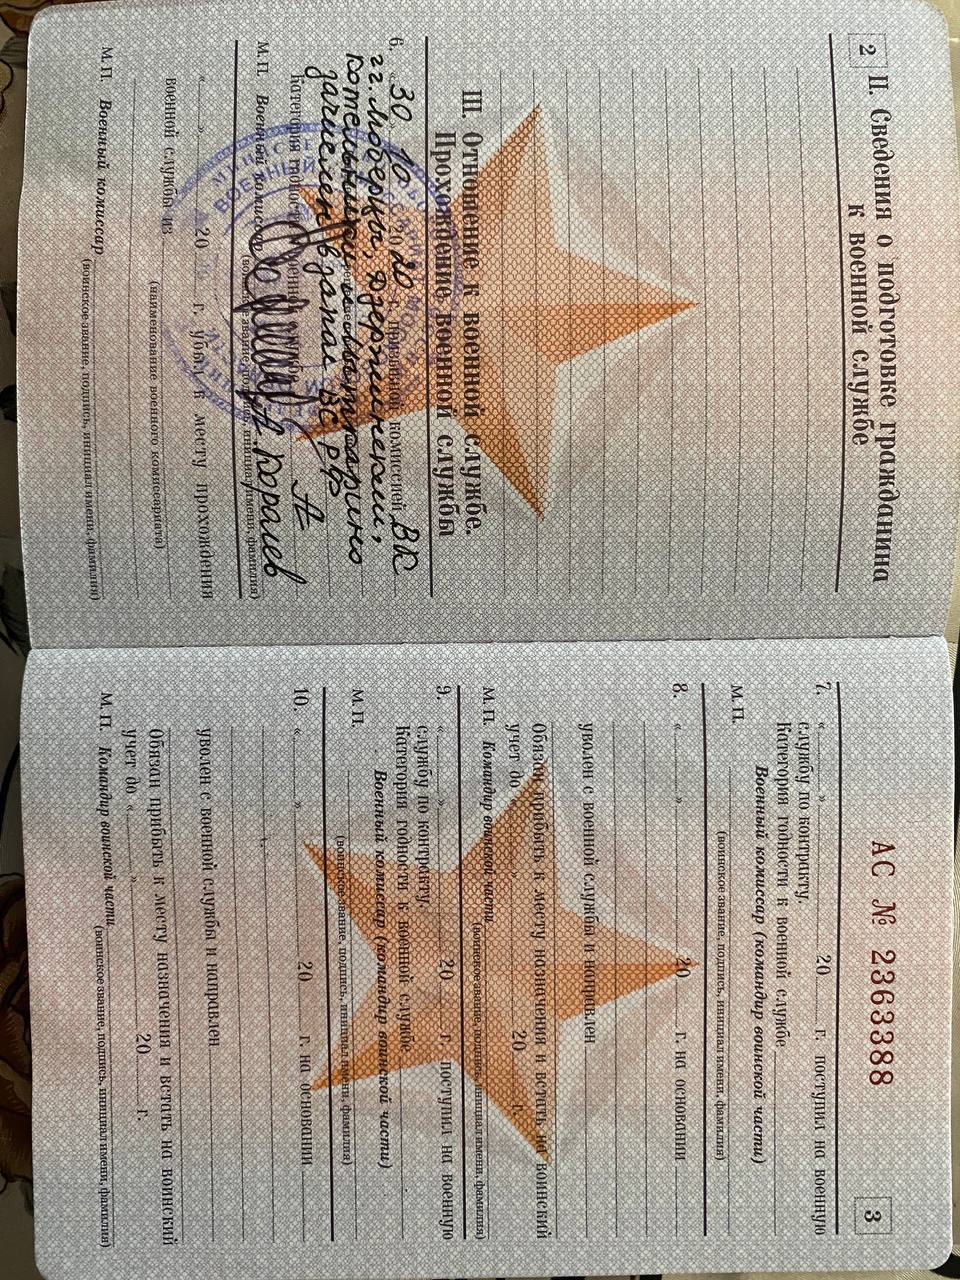 2
II. Сведения о подготовке гражданина
к военной службе
III. Отношение к военной службе.
Прохождение военной службы
6. «30» 10 2020 г. призывной комиссией ВК
гг. Люберцы, Дзержинский,
Котельники, Лыткарино
зачислен в запас ВС РФ
Категория годности к военной службе А
М.П. Военный комиссар А. Королев
(воинское звание, подпись, инициал имени, фамилия)
« » 20 г. убыл к месту прохождения
военной службы из
(наименование военного комиссариата)
М.П. Военный комиссар
(воинское звание, подпись, инициал имени, фамилия)
АС № 2363388
3
7. « » 20 г. поступил на военную
службу по контракту.
Категория годности к военной службе
Военный комиссар (командир воинской части)
М.П.
(воинское звание, подпись, инициал имени, фамилия)
8. « » 20 г. на основании
уволен с военной службы и направлен
Обязан прибыть к месту назначения и встать на воинский
учет до « » 20 г.
М.П. Командир воинской части
(воинское звание, подпись, инициал имени, фамилия)
9. « » 20 г. поступил на военную
службу по контракту.
Категория годности к военной службе
Военный комиссар (командир воинской части)
М.П.
(воинское звание, подпись, инициал имени, фамилия)
10. « » 20 г. на основании
уволен с военной службы и направлен
Обязан прибыть к месту назначения и встать на воинский
учет до « » 20 г.
М.П. Командир воинской части
(воинское звание, подпись, инициал имени, фамилия)